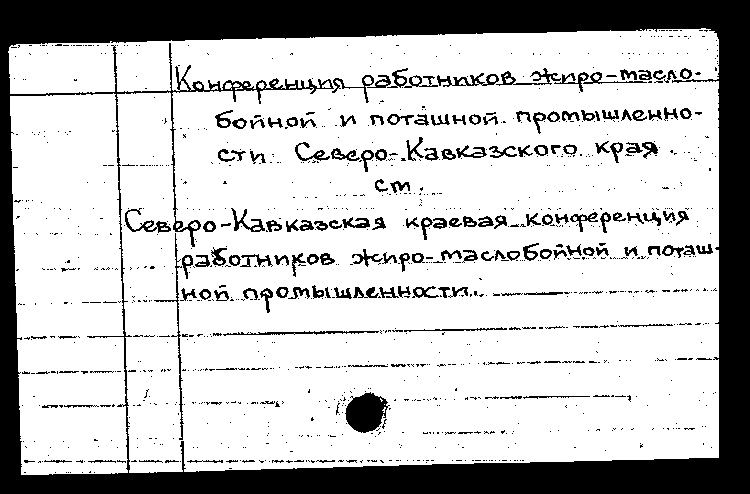 Конференция работников жиро-масло-
бойной и поташной промышленно-
сти Северо-Кавказского края.
см.
Северо-Кавказская краевая конференция
работников жиро-маслобойной и поташ-
ной промышленности.